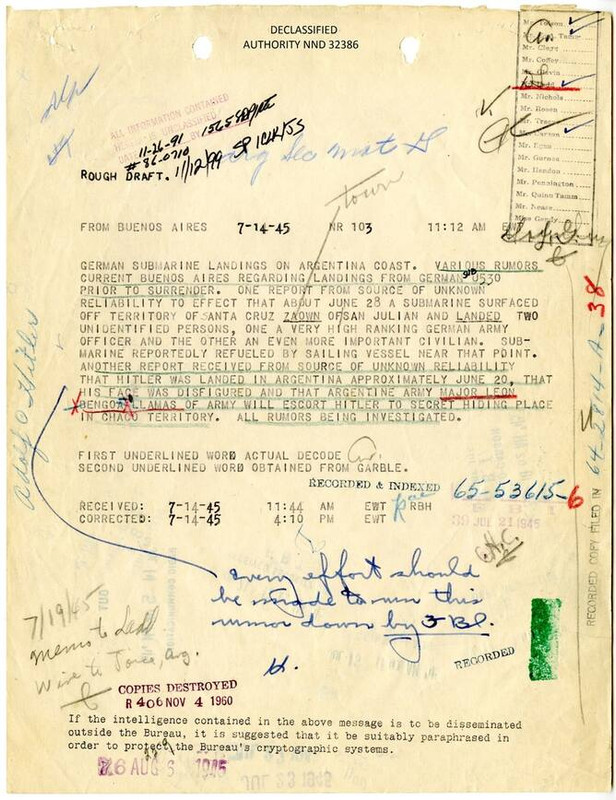 DECLASSIFIED
AUTHORITY NND 32386
Mr. Tolson
Mr. Clegg
Mr. Coffey
Mr. Glavin
Mr. Ladd
Mr. Nichols
Mr. Rosen
Mr. Tracy
Mr. Carson
Mr. Egan
Mr. Gurnea
Mr. Hendon
Mr. Pennington
Mr. Quinn Tamm
Mr. Nease
Miss Gandy
ALL INFORMATION CONTAINED
11-26-91
#86-0710
11/12/99
ROUGH DRAFT.
town
FROM BUENOS AIRES 7-14-45 NR 103 11:12 AM EWT
GERMAN SUBMARINE LANDINGS ON ARGENTINA COAST. VARIOUS RUMORS
SUB
CURRENT BUENOS AIRES REGARDING LANDINGS FROM GERMAN U530
PRIOR TO SURRENDER. ONE REPORT FROM SOURCE OF UNKNOWN
RELIABILITY TO EFFECT THAT ABOUT JUNE 28 A SUBMARINE SURFACED
OFF TERRITORY OF SANTA CRUZ ZAOWN OF SAN JULIAN AND LANDED TWO
UNIDENTIFIED PERSONS, ONE A VERY HIGH RANKING GERMAN ARMY
OFFICER AND THE OTHER AN EVEN MORE IMPORTANT CIVILIAN. SUB-
MARINE REPORTEDLY REFUELED BY SAILING VESSEL NEAR THAT POINT.
ANOTHER REPORT RECEIVED FROM SOURCE OF UNKNOWN RELIABILITY
THAT HITLER WAS LANDED IN ARGENTINA APPROXIMATELY JUNE 20, THAT
HIS FACE WAS DISFIGURED AND THAT ARGENTINE ARMY MAJOR LEON
BENGOA LLAMAS OF ARMY WILL ESCORT HITLER TO SECRET HIDING PLACE
IN CHACO TERRITORY. ALL RUMORS BEING INVESTIGATED.
Adolf Hitler
FIRST UNDERLINED WORD ACTUAL DECODE
SECOND UNDERLINED WORD OBTAINED FROM GARBLE.
RECORDED & INDEXED 65-53615-6
RECEIVED: 7-14-45 11:44 AM EWT RBH
CORRECTED: 7-14-45 4:10 PM EWT
JUL 21 1945
RECORDED COPY FILED IN 64-2814-A-38
every effort should
be made to run this
rumor down by FBI.
H.
7/19/45
Memo to Ladd
Wire to
RECORDED
COPIES DESTROYED
R 406 NOV 4 1960
If the intelligence contained in the above message is to be disseminated
outside the Bureau, it is suggested that it be suitably paraphrased in
order to protect the Bureau's cryptographic systems.
76 AUG 6 1945
JUL 23 1945